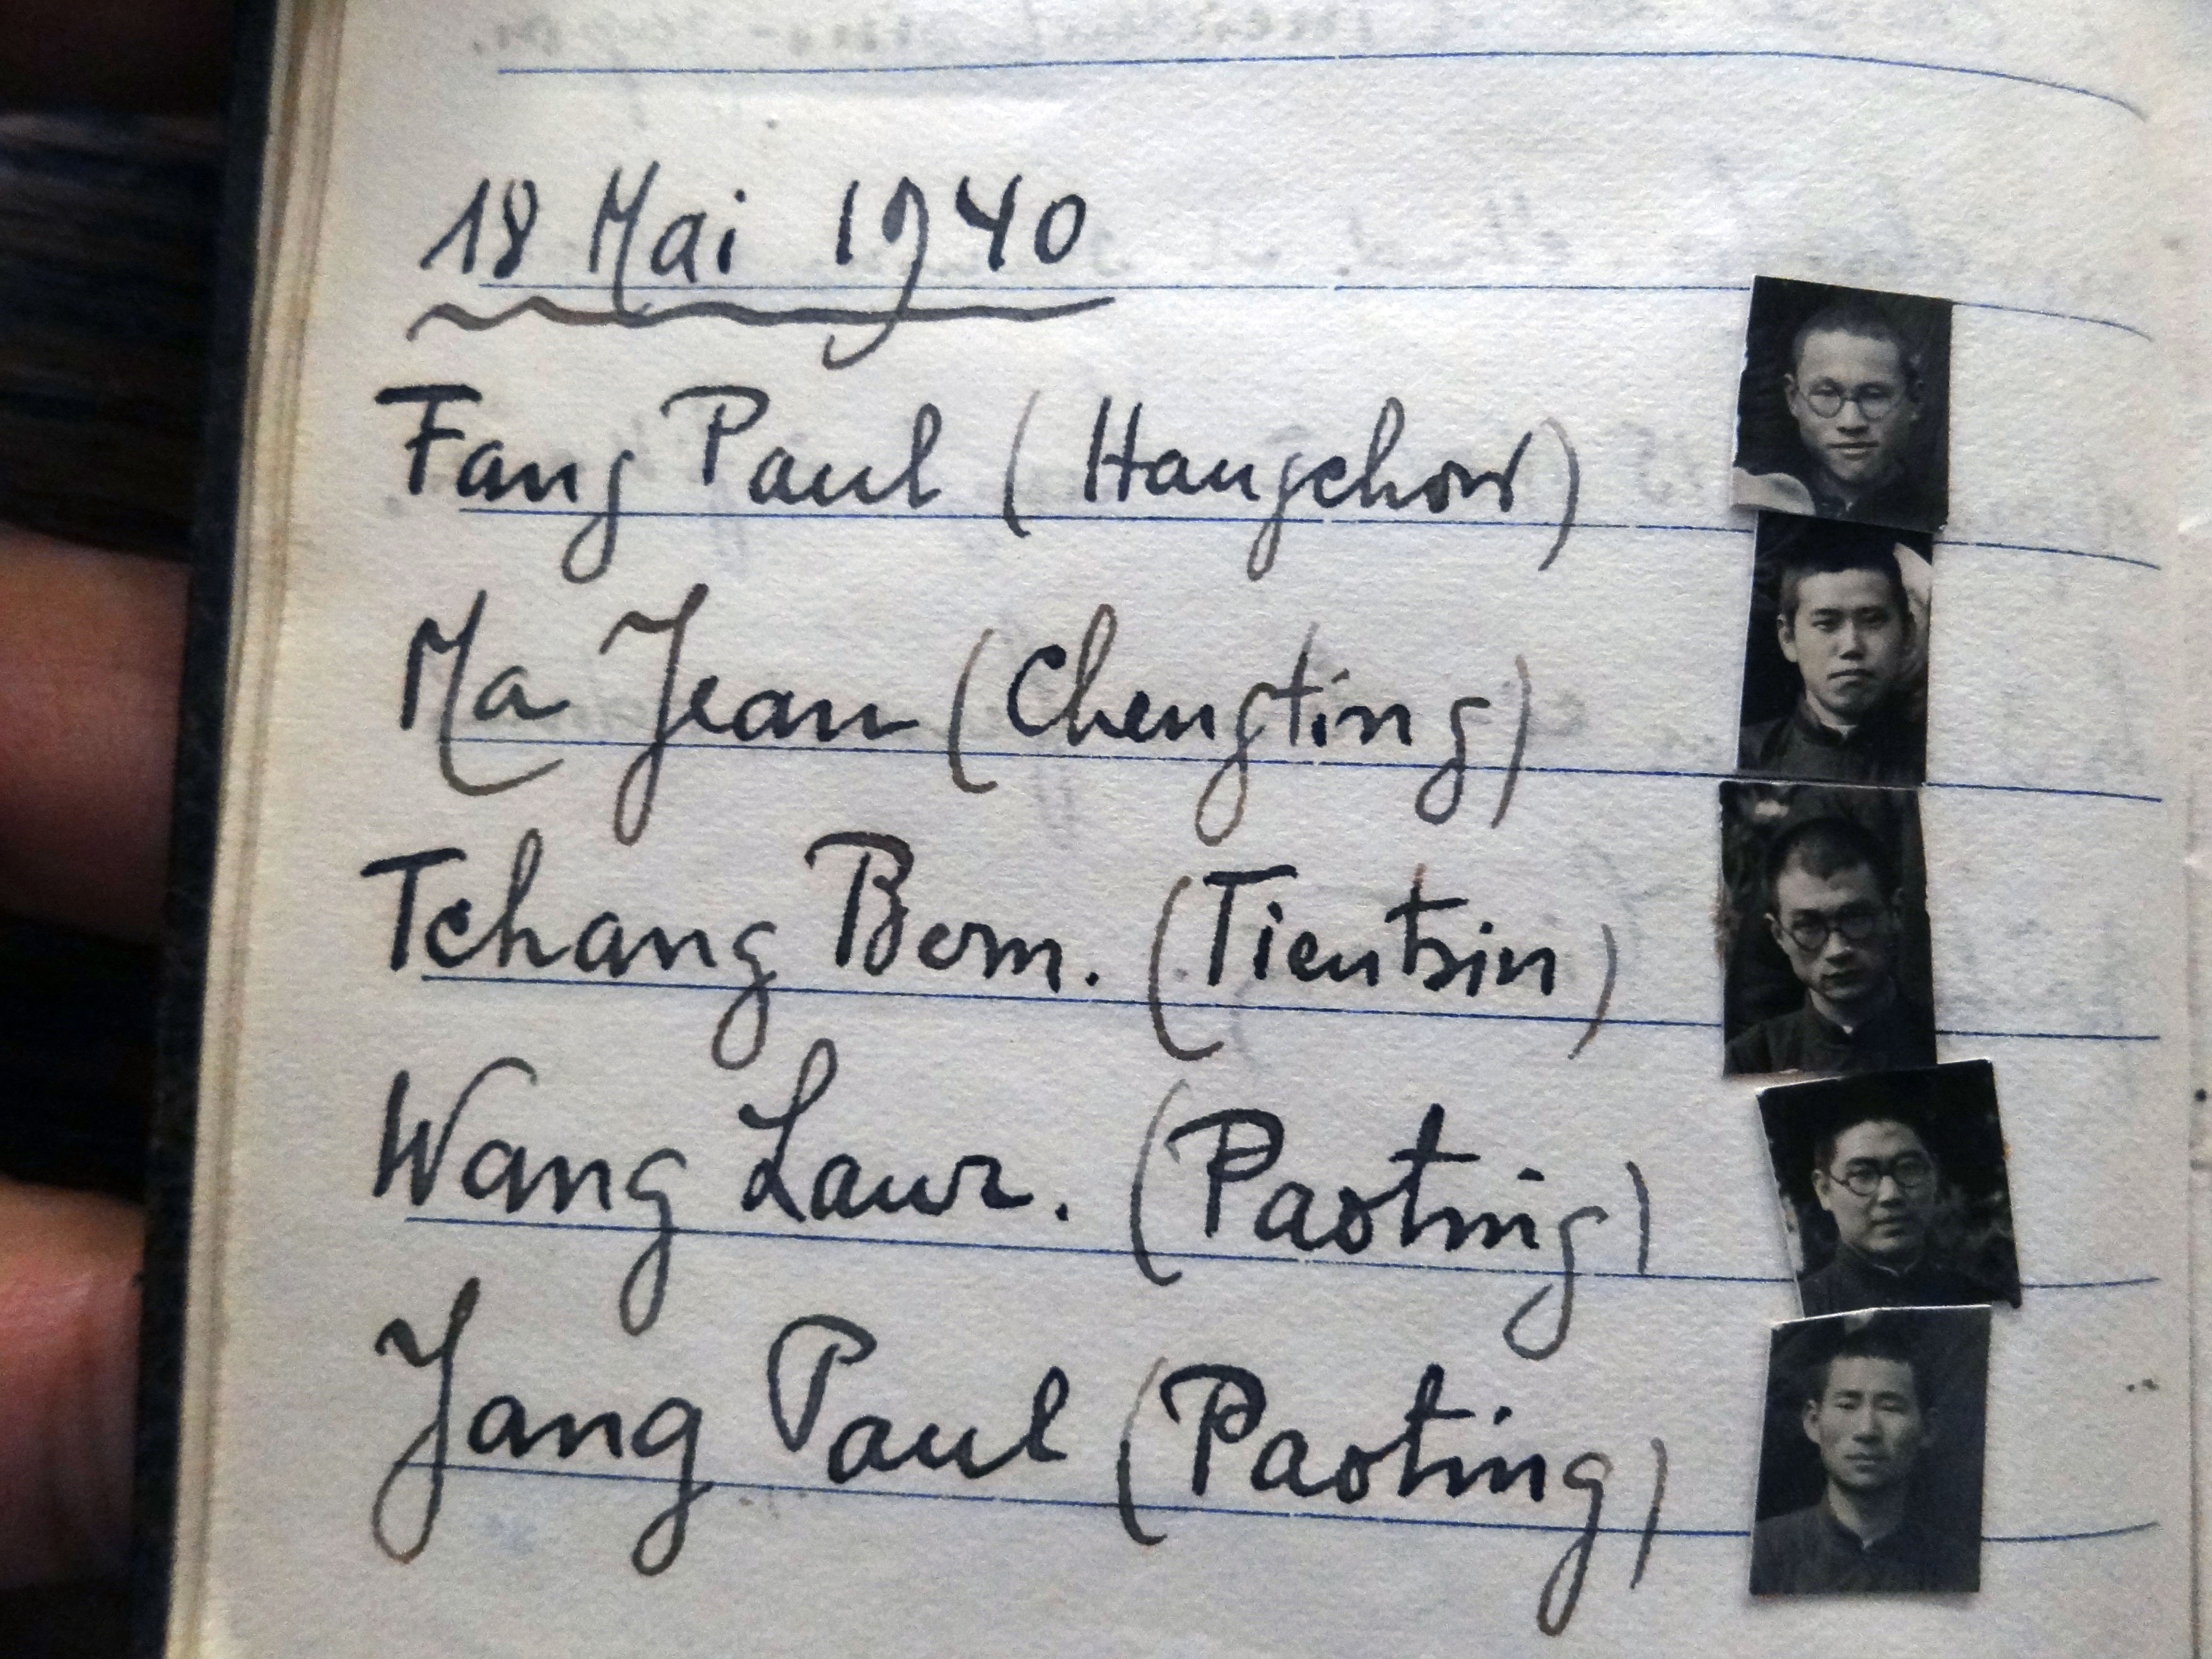 18 Mai 1940
Fang Paul (Hangchow)
Ma Jean (Chengting)
Tchang Bern. (Tientsin)
Wang Laur. (Paoting)
Jang Paul (Paoting)